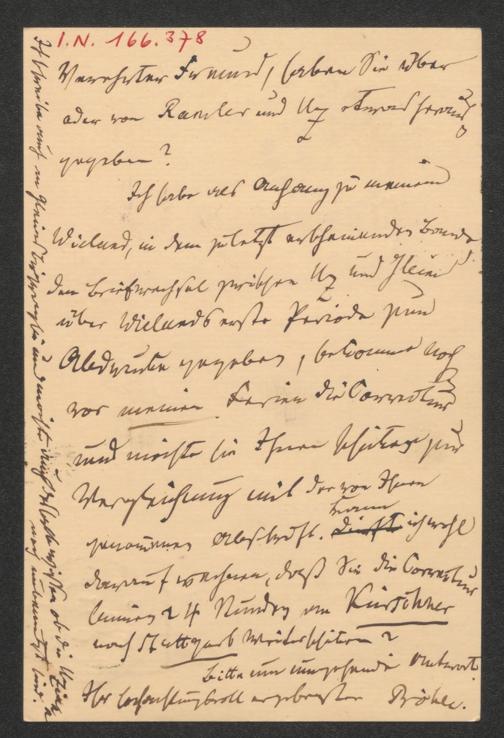 I.N. 166.378
Verehrter Freund, haben Sie über
oder von Ramler und Uz etwas heraus
gegeben?
Ich habe als Anhang zu meinem
Wieland, in dem zuletzt erscheinenden Bande
den Briefwechsel zwischen Uz und Gleim
über Wielands erste Periode zum
Abdrucke gegeben, bekomme noch
vor meinen Ferien die Correctur
und möchte sie Ihnen schicken zur
Vergleichung mit der von Ihnen
genommenen Abschrift. Kann ich wohl
darauf rechnen, daß Sie die Correctur
binnen 24 Stunden an Kürschner
nach Stuttgart weiterschicken?
Bitte um umgehende Antwort.
Ihr hochachtungsvoll ergebenster Pröhle.
Ich schreibe auch in und möchte auch deshalb wissen ob die
noch unbenutzt sind.